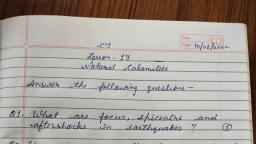 Date:
Page: 10/02/2022
CT
Lesson - 18
Natural Calamities
Answer the following questions -
Q1. What are focus, epicentre and
aftershocks in earthquakes ? (3)